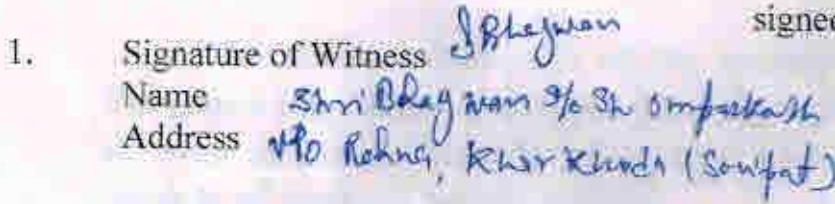 signed
1. Signature of Witness SBhagwan
Name Shri Bhagwan S/o Sh Omparkash
Address VPO Rohna, Kharkhoda (Sonipat)